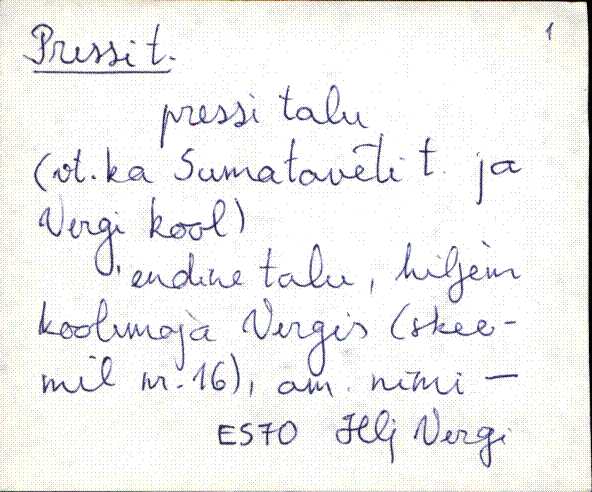 1
Pressi t.
pressi talu
(vt. ka Sumatavèti t. ja
Vergi kool)
'endine talu, hiljèm
koolimaja Vergis (skee-
mil nr. 16), am. nimi —
ES70 Hlj Vergi